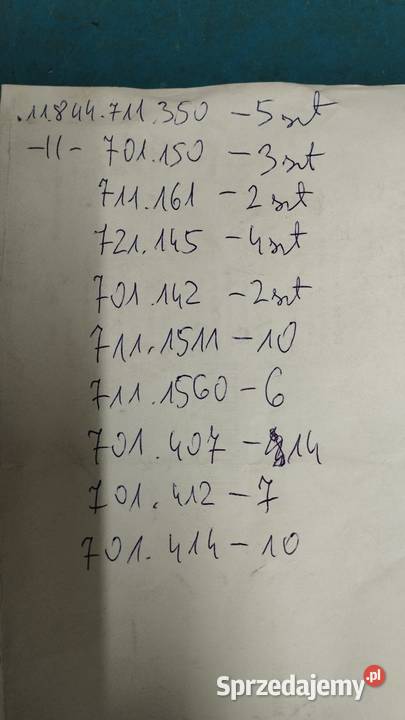 .11844.711.350 - 5 szt
-11- 701.150 - 3 szt
711.161 - 2 szt
721.145 - 4 szt
701.142 - 2 szt
711.1511 - 10
711.1560 - 6
701.407 - 14
701.412 - 7
701.414 - 10
Sprzedajemy.pl